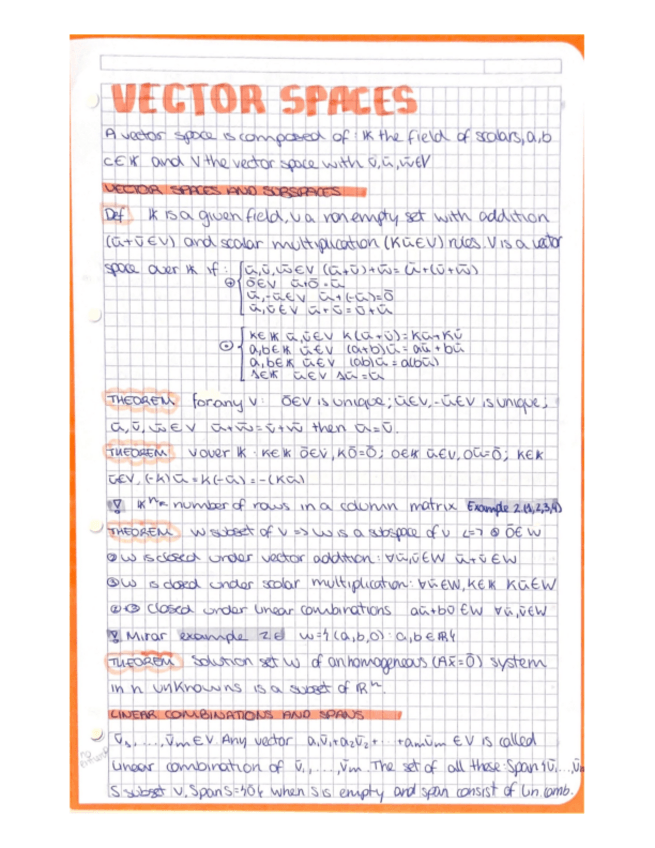 VECTOR SPACES
A vector space is composed of: 𝕂 the field of scalars, a,b
c∈𝕂 and V the vector space with v̄,ū,w̄∈V
VECTOR SPACES AND SUBSPACES
Def 𝕂 is a given field, V a non empty set with addition
(ū+v̄∈V) and scalar multiplication (Kū∈V) rules. V is a vector
space over 𝕂 if: ū,v̄,w̄∈V (ū+v̄)+w̄=ū+(v̄+w̄)
⊕ 0̄∈V ū+0̄=ū
ū,-ū∈V ū+(-ū)=0̄
ū,v̄∈V ū+v̄=v̄+ū
K∈𝕂 ū,v̄∈V K(ū+v̄)=Kū+Kv̄
⊙ a,b∈𝕂 ū∈V (a+b)ū=aū+bū
a,b∈𝕂 ū∈V (ab)ū=a(bū)
1∈𝕂 ū∈V 1ū=ū
THEOREM for any V: 0̄∈V is unique; ū∈V,-ū∈V is unique;
ū,v̄,w̄∈V ū+w̄=v̄+w̄ then ū=v̄.
THEOREM V over 𝕂: K∈𝕂 0̄∈V, K0̄=0̄; 0∈𝕂 ū∈V, 0ū=0̄; K∈𝕂
ū∈V, (-K)ū=K(-ū)=-(Kū)
𝕂ⁿ= number of rows in a column matrix Example 2.(1,2,3,4)
THEOREM W subset of V => W is a subspace of V <=> ① 0̄∈W
② W is closed under vector addition: ∀ū,v̄∈W ū+v̄∈W
③ W is closed under scalar multiplication: ∀ū∈W, K∈𝕂 Kū∈W
② ③ Closed under linear combinations aū+bv̄∈W ∀ū,v̄∈W
Mirar example 2.6 W={(a,b,0): a,b∈ℝ}
THEOREM Solution set W of an homogeneous (Ax̄=0̄) system
in n unknowns is a subset of ℝⁿ.
LINEAR COMBINATIONS AND SPANS
v̄₁,...,v̄m∈V. Any vector a₁v̄₁+a₂v̄₂+...+amv̄m∈V is called
no
linear combination of v̄₁,...,v̄m. The set of all these: Span{v̄₁,...,v̄m
S subset V. Span S={0} when S is empty and span consist of lin. comb.